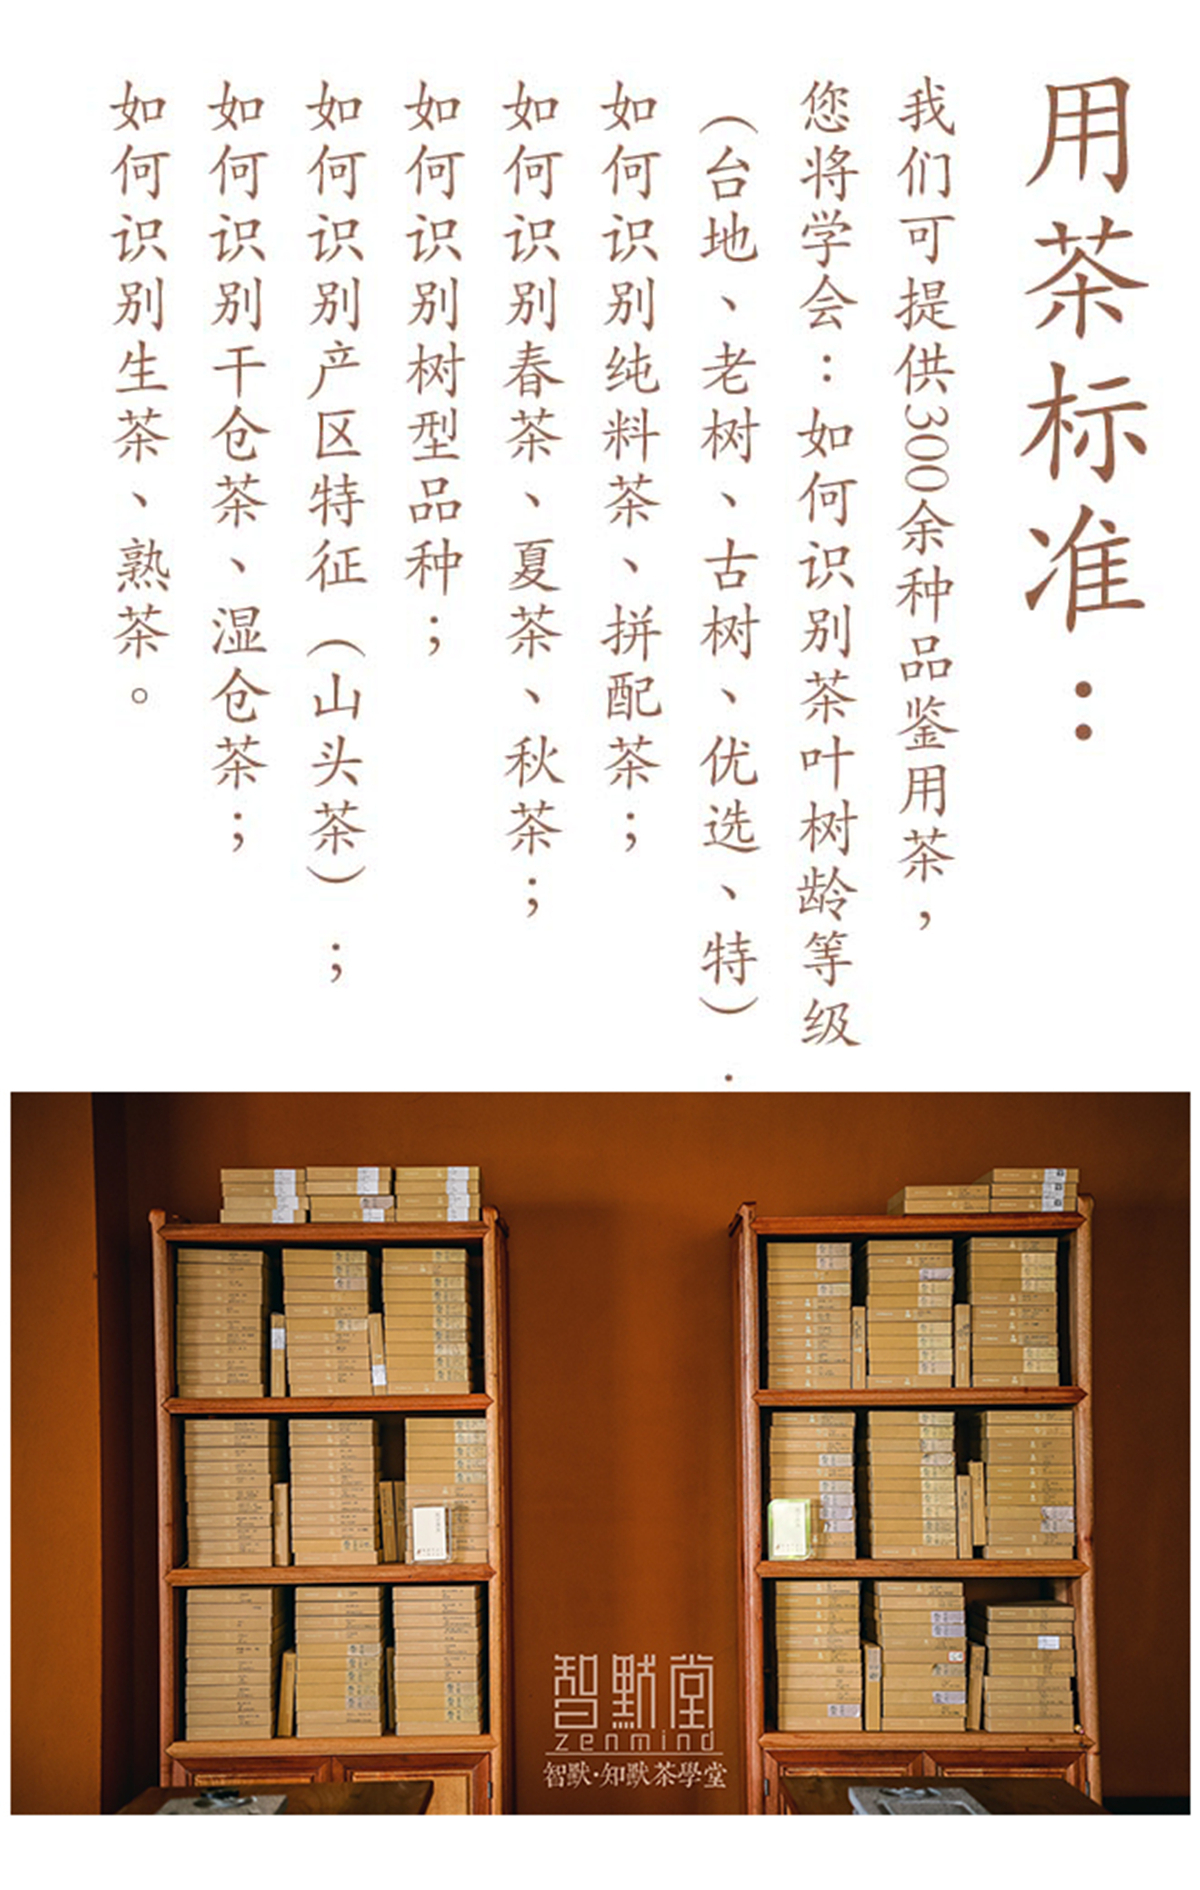 用茶标准：
我们可提供300余种品鉴用茶，
您将学会：如何识别茶叶树龄等级
（台地、老树、古树、优选、特）
如何识别纯料茶、拼配茶；
如何识别春茶、夏茶、秋茶；
如何识别树型品种；
如何识别产区特征（山头茶）；
如何识别干仓茶、湿仓茶；
如何识别生茶、熟茶。
智默堂
zenmind
智默·知默茶學堂